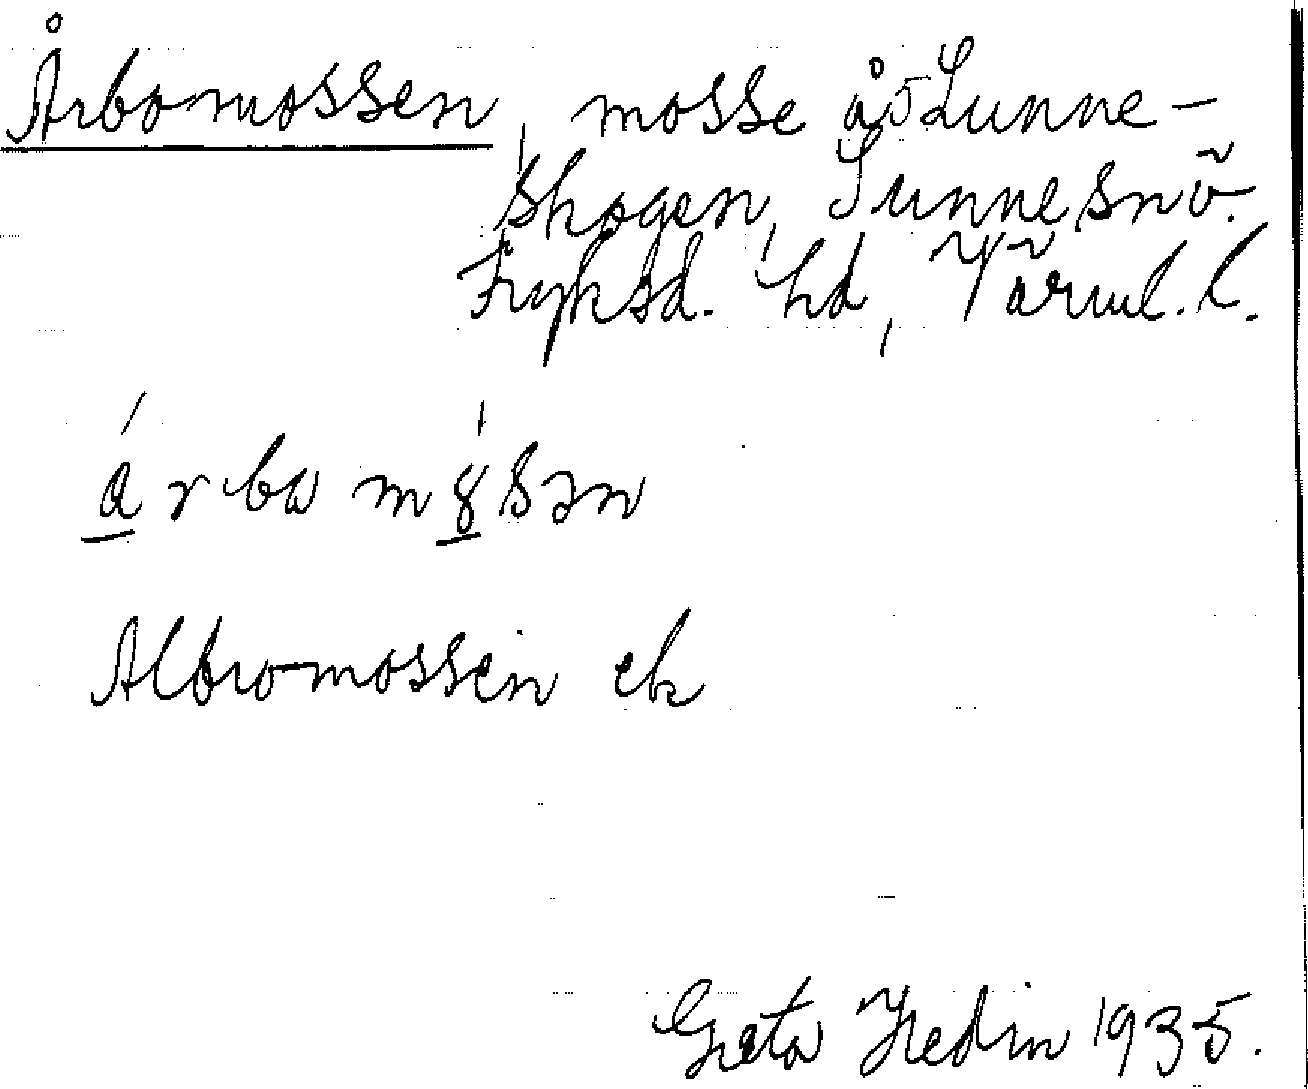 Årbomossen, mosse å Lunne-
skogen, Sunne snö.
Fryksd. hd, Värml. l.
árba mósən
Albromossen ek
Greta Hedin 1935.